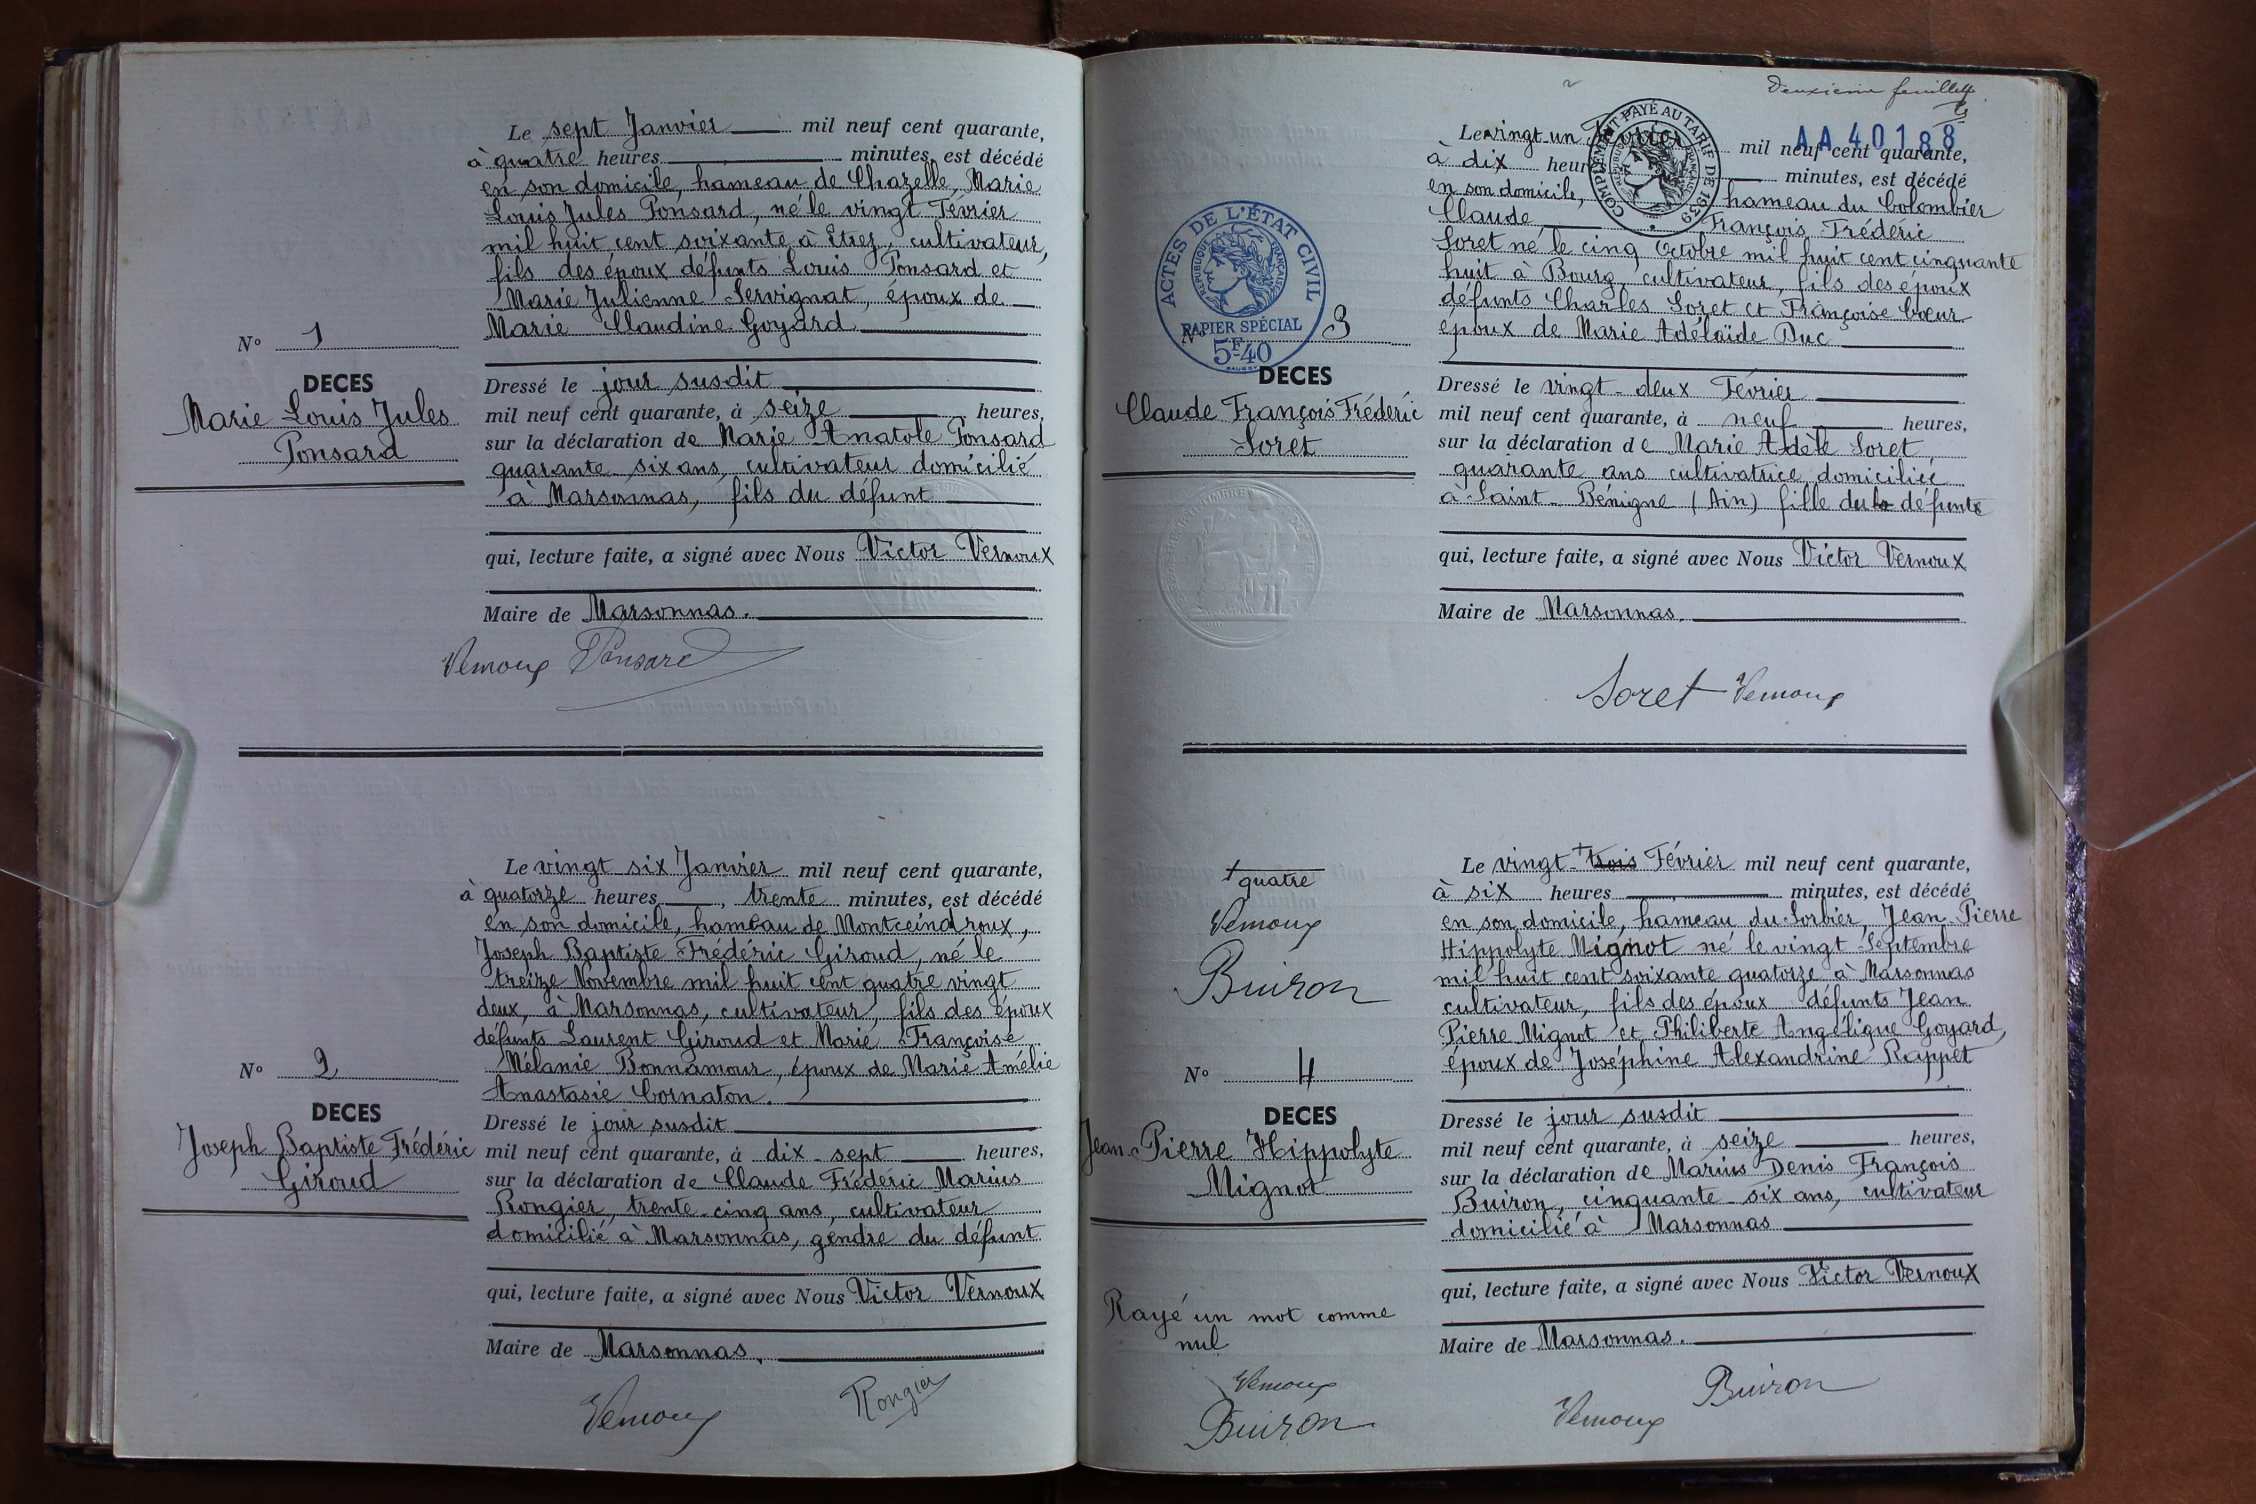 Le sept Janvier mil neuf cent quarante,
à quatre heures minutes, est décédé
en son domicile, hameau de Chazelle, Marie
Louis Jules Ponsard, né le vingt Février
mil huit cent soixante à Etrez, cultivateur,
fils des époux défunts Louis Ponsard et
Marie Julienne Servignat, époux de
Marie Claudine Goyard
N° 1
DECES
Marie Louis Jules
Ponsard
Dressé le jour susdit
mil neuf cent quarante, à seize heures,
sur la déclaration de Marie Anatole Ponsard
quarante six ans, cultivateur domicilié
à Marsonnas, fils du défunt
qui, lecture faite, a signé avec Nous Victor Vernoux
Maire de Marsonnas.
Vernoux Ponsard
Le vingt six Janvier mil neuf cent quarante,
à quatorze heures, trente minutes, est décédé
en son domicile, hameau de Montceindroux,
Joseph Baptiste Frédéric Giroud, né le
treize Novembre mil huit cent quatre vingt
deux, à Marsonnas, cultivateur, fils des époux
défunts Laurent Giroud et Marie Françoise
Mélanie Bonnamour, époux de Marie Amélie
Anastasie Cornaton.
N° 2
DECES
Joseph Baptiste Frédéric
Giroud
Dressé le jour susdit
mil neuf cent quarante, à dix-sept heures,
sur la déclaration de Claude Frédéric Marius
Rongier, trente-cinq ans, cultivateur
domicilié à Marsonnas, gendre du défunt
qui, lecture faite, a signé avec Nous Victor Vernoux
Maire de Marsonnas.
Vernoux Rongier
Deuxième feuillet
AA 40188
COMPLEMENT PAYÉ AU TARIF DE 1939
Le vingt un mil neuf cent quarante,
à dix heures minutes, est décédé
en son domicile, hameau du Colombier
Claude François Frédéric
Soret né le cinq Octobre mil huit cent cinquante
huit à Bourg, cultivateur, fils des époux
défunts Charles Soret et Françoise Cœur
époux de Marie Adélaïde Duc
ACTES DE L'ÉTAT CIVIL
RÉPUBLIQUE FRANÇAISE
PAPIER SPÉCIAL
5F40
N° 3
DECES
Claude François Frédéric
Soret
Dressé le vingt-deux Février
mil neuf cent quarante, à neuf heures,
sur la déclaration de Marie Adèle Soret,
quarante ans cultivatrice domiciliée
à Saint-Bénigne (Ain) fille du la défunte
qui, lecture faite, a signé avec Nous Victor Vernoux
Maire de Marsonnas.
Soret Vernoux
Le vingt-+trois Février mil neuf cent quarante,
à six heures minutes, est décédé
en son domicile, hameau du Sorbier, Jean-Pierre
Hippolyte Mignot né le vingt Septembre
mil huit cent soixante quatorze à Marsonnas
cultivateur, fils des époux défunts Jean
Pierre Mignot et Philiberte Angélique Goyard,
époux de Joséphine Alexandrine Rappet
+quatre
Vernoux
Buiron
N° 4
DECES
Jean-Pierre Hippolyte
Mignot
Dressé le jour susdit
mil neuf cent quarante, à seize heures,
sur la déclaration de Marius Denis François
Buiron, cinquante-six ans, cultivateur
domicilié à Marsonnas
qui, lecture faite, a signé avec Nous Victor Vernoux
Maire de Marsonnas.
Rayé un mot comme
nul
Vernoux
Buiron
Buiron
Vernoux